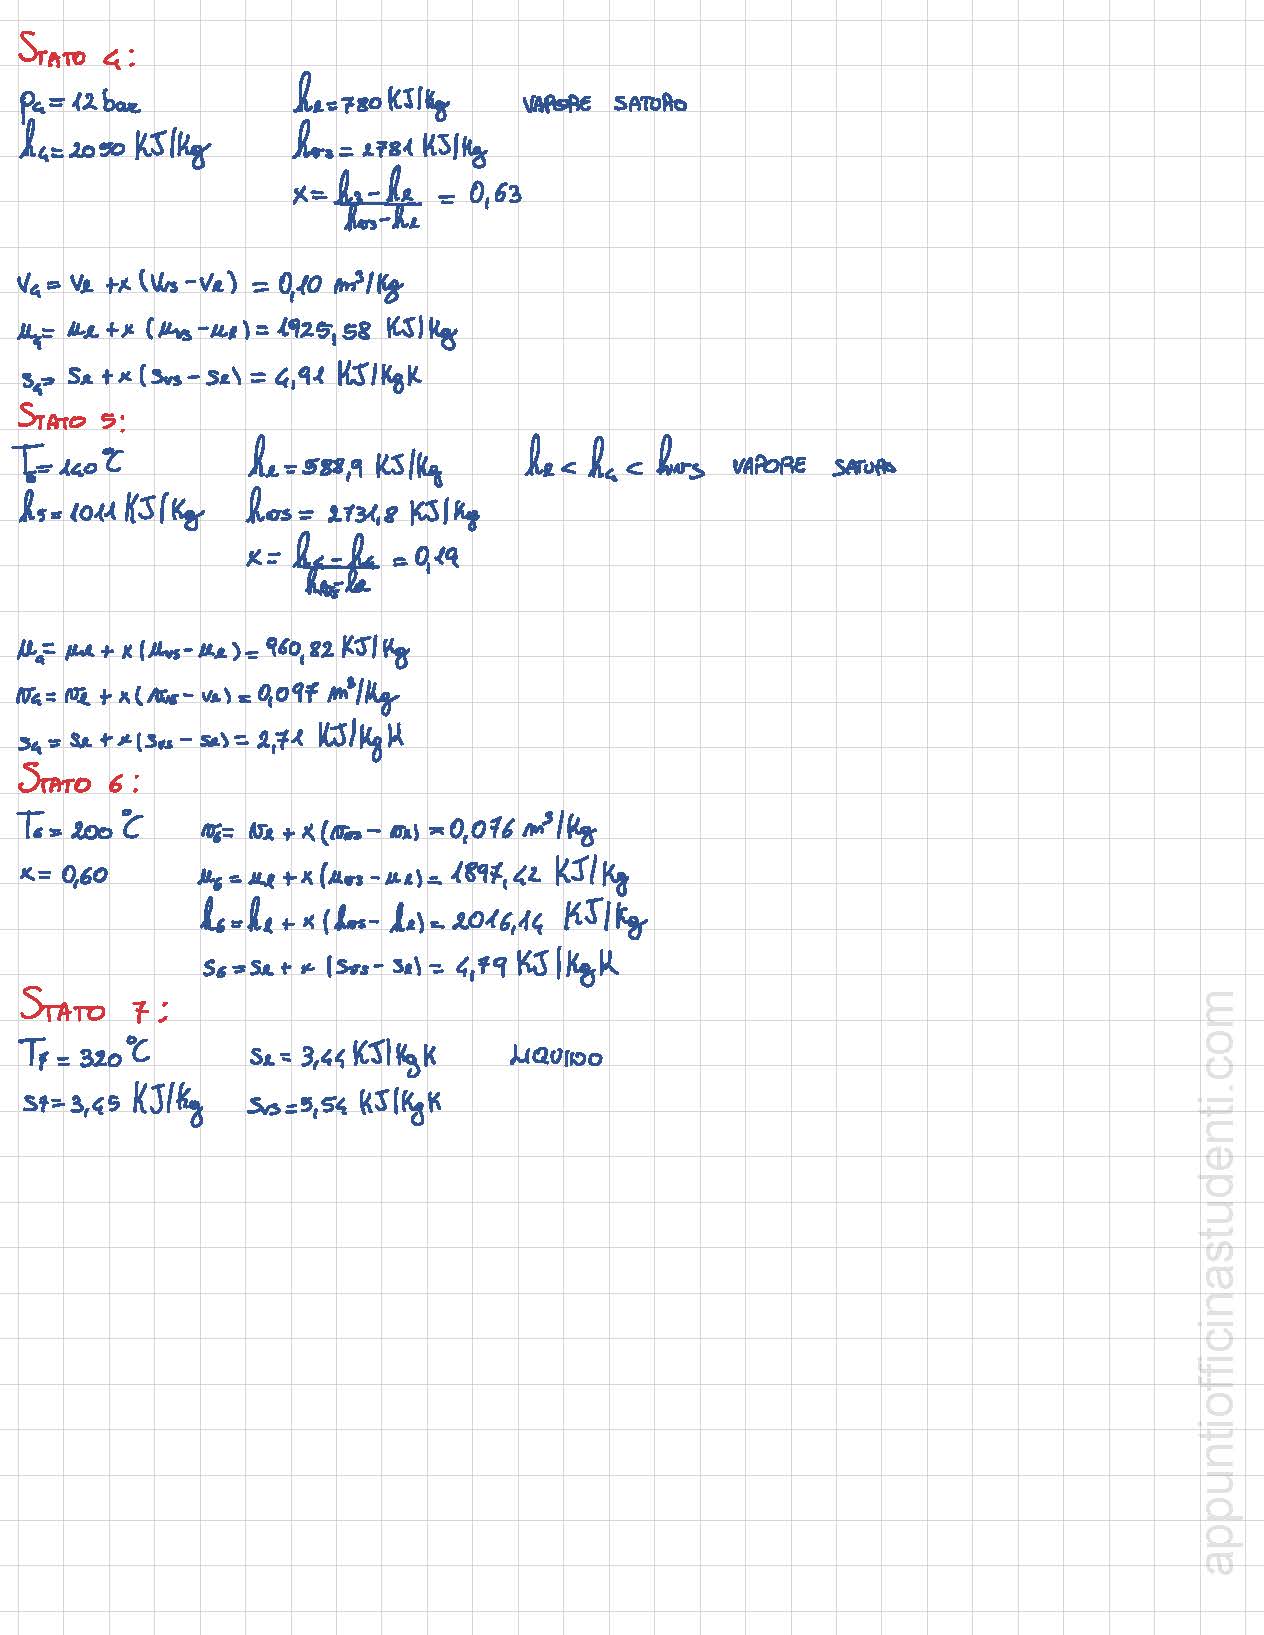 STATO 4:
p₄ = 12 bar   hℓ = 780 KJ/Kg   VAPORE SATURO
h₄ = 2050 KJ/Kg   hvs = 2781 KJ/Kg
x = (h₃ - hℓ)/(hvs - hℓ) = 0,63
v₄ = vℓ + x (vvs - vℓ) = 0,10 m³/Kg
μ₄ = μℓ + x (μvs - μℓ) = 1925,58 KJ/Kg
s₄ = sℓ + x (svs - sℓ) = 4,91 KJ/KgK
STATO 5:
T₅ = 140°C   hℓ = 588,9 KJ/Kg   hℓ < h₄ < hvs VAPORE SATURO
h₅ = 1011 KJ/Kg   hvs = 2731,8 KJ/Kg
x = (h₄ - h₄)/(hvs - hℓ) = 0,19
μ₄ = μℓ + x (μvs - μℓ) = 960,82 KJ/Kg
v₄ = vℓ + x (vvs - vℓ) = 0,097 m³/Kg
s₄ = sℓ + x (svs - sℓ) = 2,71 KJ/KgK
STATO 6:
T₆ = 200°C   v₆ = vℓ + x (vvs - vℓ) = 0,076 m³/Kg
x = 0,60   μ₆ = μℓ + x (μvs - μℓ) = 1897,42 KJ/Kg
h₆ = hℓ + x (hvs - hℓ) = 2016,14 KJ/Kg
s₆ = sℓ + x (svs - sℓ) = 4,79 KJ/KgK
STATO 7:
T₇ = 320°C   sℓ = 3,44 KJ/KgK   LIQUIDO
s₇ = 3,45 KJ/Kg   svs = 5,54 KJ/KgK
appuntiofficinastudenti.com